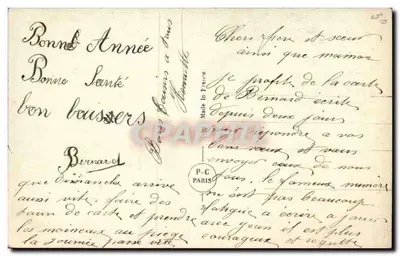 Bonne Année
Bonne Santé
bon baisers
Bernard
que dimanche arrive
aussi vite. faire des
tours de carte et prendre
les moineaux au piège
la journée passe vite
Bons baisers à tous
Made in France
P-C
PARIS
Chers père et sœur
ainsi que maman
je profite de la carte
de Bernard écrite
depuis deux jours
répondre a vos
bons vœux et vous
envoyer ceux de nous
tous. le fameux
ne sont pas beaucoup
fatigué a écrire a jouer
avec jean il est plus
courageux et